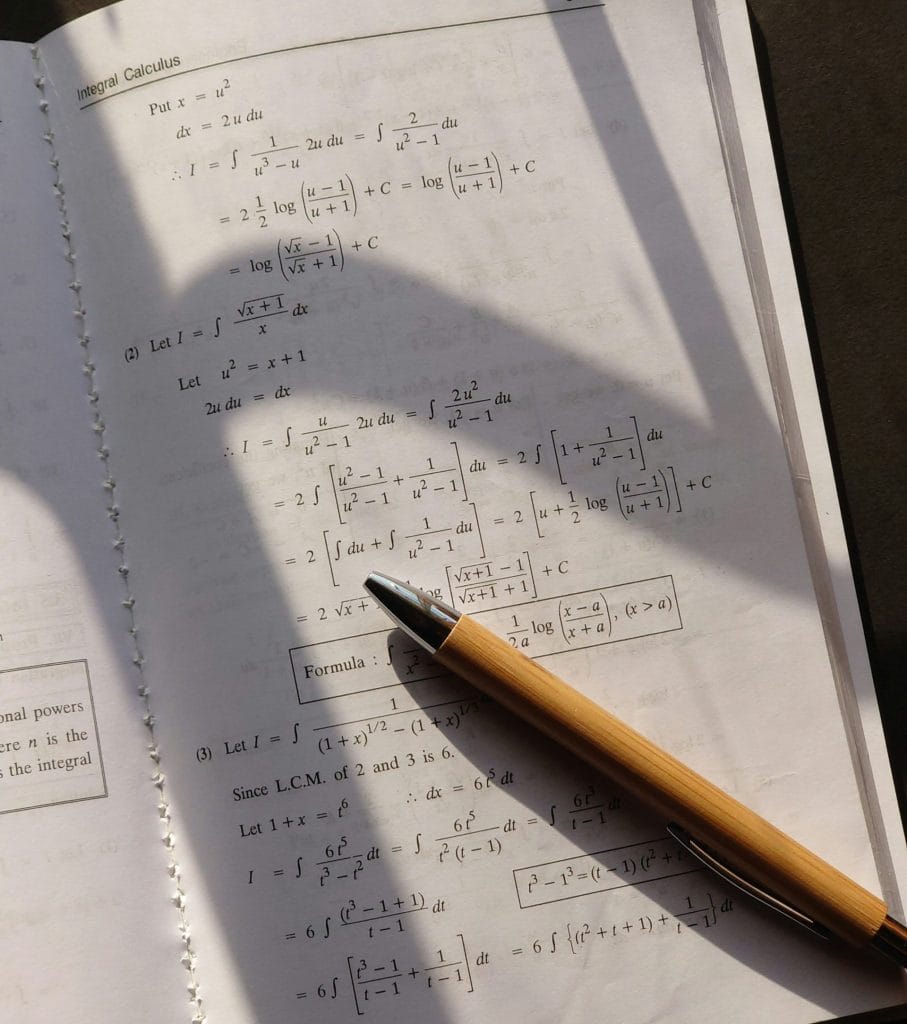 Integral Calculus
Put x = u²
dx = 2u du
∴ I = ∫ 1/(u³ − u) 2u du = ∫ 2/(u² − 1) du
= 2 1/2 log ((u − 1)/(u + 1)) + C = log ((u − 1)/(u + 1)) + C
= log ((√x − 1)/(√x + 1)) + C
(2) Let I = ∫ √(x + 1)/x dx
Let u² = x + 1
2u du = dx
∴ I = ∫ u/(u² − 1) 2u du = ∫ 2u²/(u² − 1) du
= 2 ∫ [(u² − 1)/(u² − 1) + 1/(u² − 1)] du = 2 ∫ [1 + 1/(u² − 1)] du
= 2 [∫ du + ∫ 1/(u² − 1) du] = 2 [u + 1/2 log ((u − 1)/(u + 1))] + C
= 2 √x + log [(√x+1 − 1)/(√x+1 + 1)] + C
Formula : ∫ x² 1/2a log ((x − a)/(x + a)), (x > a)
(3) Let I = ∫ 1/((1 + x)^1/2 − (1 + x)^1/3)
Since L.C.M. of 2 and 3 is 6.
Let 1 + x = t⁶ ∴ dx = 6t⁵ dt
I = ∫ 6t⁵/(t³ − t²) dt = ∫ 6t⁵/(t² (t − 1)) dt = ∫ 6t³/(t − 1) dt
t³ − 1³ = (t − 1) (t² + t
= 6 ∫ (t³ − 1 + 1)/(t − 1) dt
= 6 ∫ [(t³ − 1)/(t − 1) + 1/(t − 1)] dt = 6 ∫ {(t² + t + 1) + 1/(t − 1)} dt
onal powers
ere n is the
s the integral